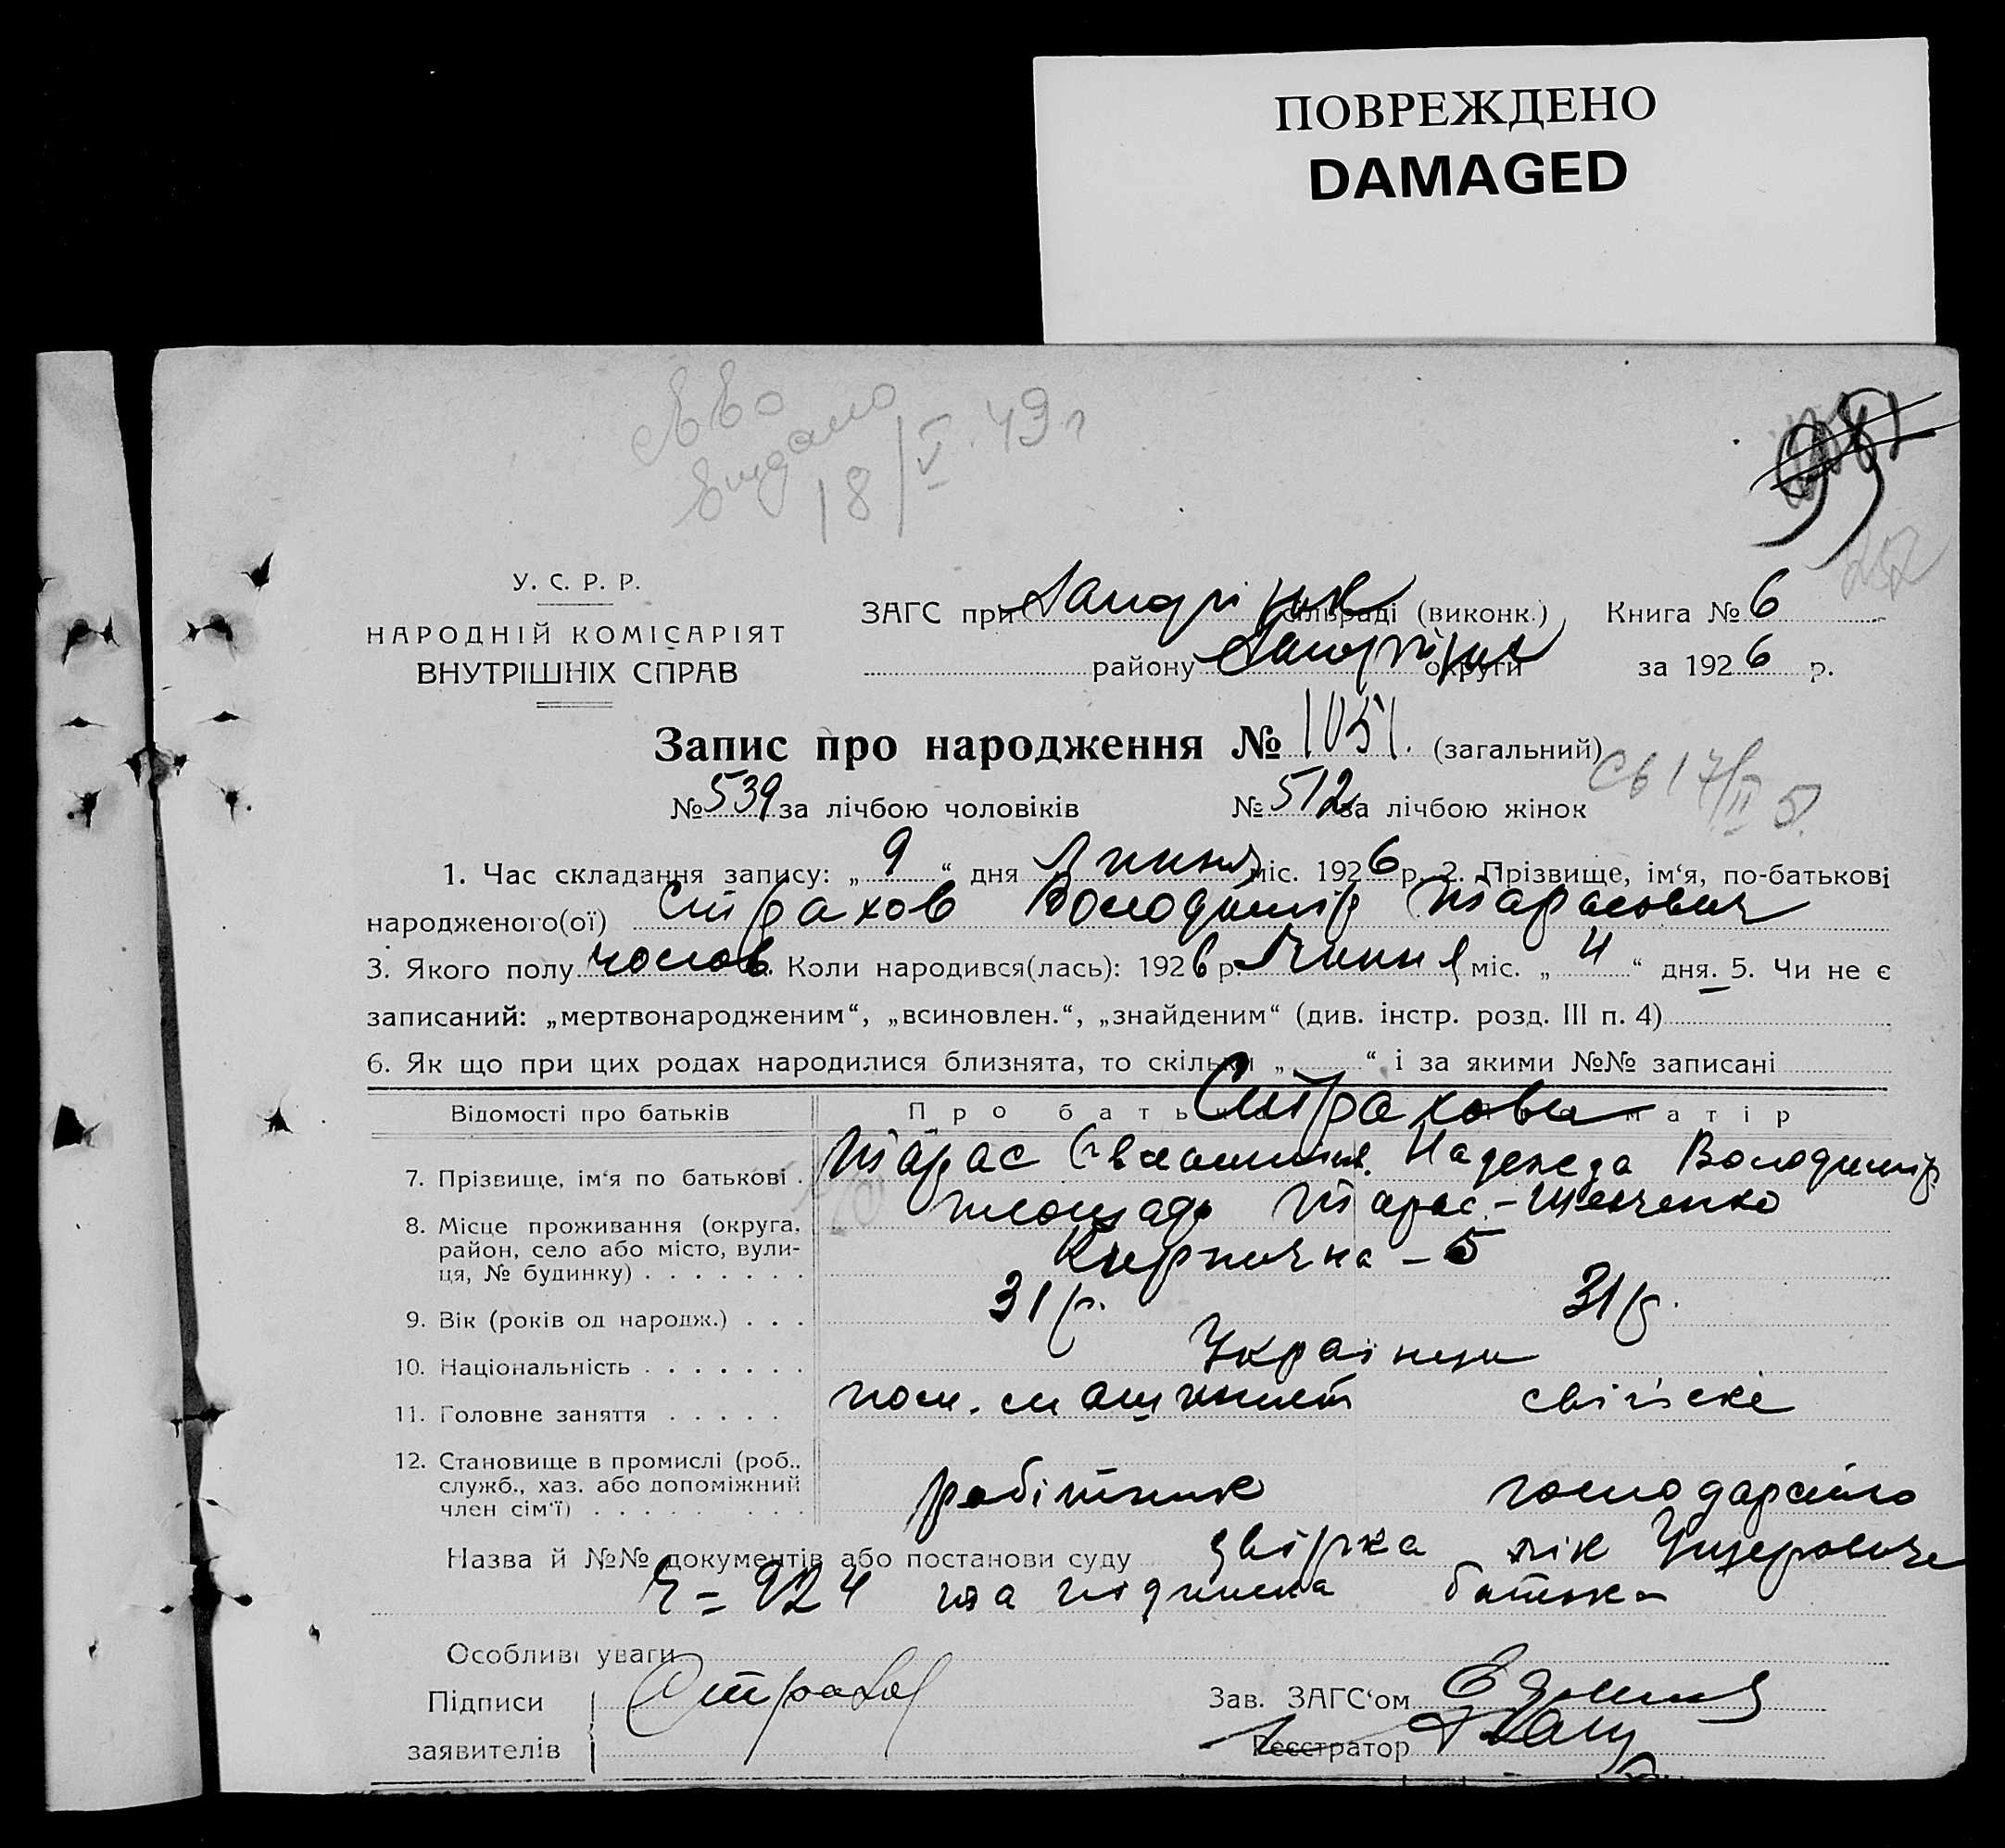 ПОВРЕЖДЕНО
DAMAGED
выдано
18/V.49 г
У. С. Р. Р.
НАРОДНІЙ КОМІСАРІЯТ
ВНУТРІШНІХ СПРАВ
ЗАГС при сільраді (виконк.) Книга № 6
району округи за 1926 р.
Запис про народження № 1051. (загальний)
№ 539 за лічбою чоловіків № 512 за лічбою жінок
1. Час складання запису: „ 9 “ дня Липня міс. 1926 р. 2. Прізвище, ім‘я, по-батькові
народженого(ої) Страхов Володимір Тарасович
3. Якого полу чолов. Коли народився(лась): 1926 р. Липня міс. „ 4 “ дня. 5. Чи не є
записаний: „мертвонародженим“, „всиновлен.“, „знайденим“ (див. інстр. розд. III п. 4)
6. Як що при цих родах народилися близнята, то скільки „ “ і за якими №№ записані
Відомості про батьків Про батька Страхови матір
7. Прізвище, ім‘я по батькові . Тарас Надежда Володимір
8. Місце проживання (округа, район, село або місто, вулиця, № будинку) площадь Тарас-Шевченко
Кирпична - 5
9. Вік (років од народж.) . . . 31 р. 31 р.
10. Національність Українци
11. Головне заняття пом. машиніст свійске
12. Становище в промислі (роб., служб., хаз. або допоміжний член сім‘ї) робітник господарство
Назва й №№ документів або постанови суду довірка лік
924 та підписка батька
Особливі уваги
Підписи Страхов Зав. ЗАГС‘ом
заявителів Реєстратор